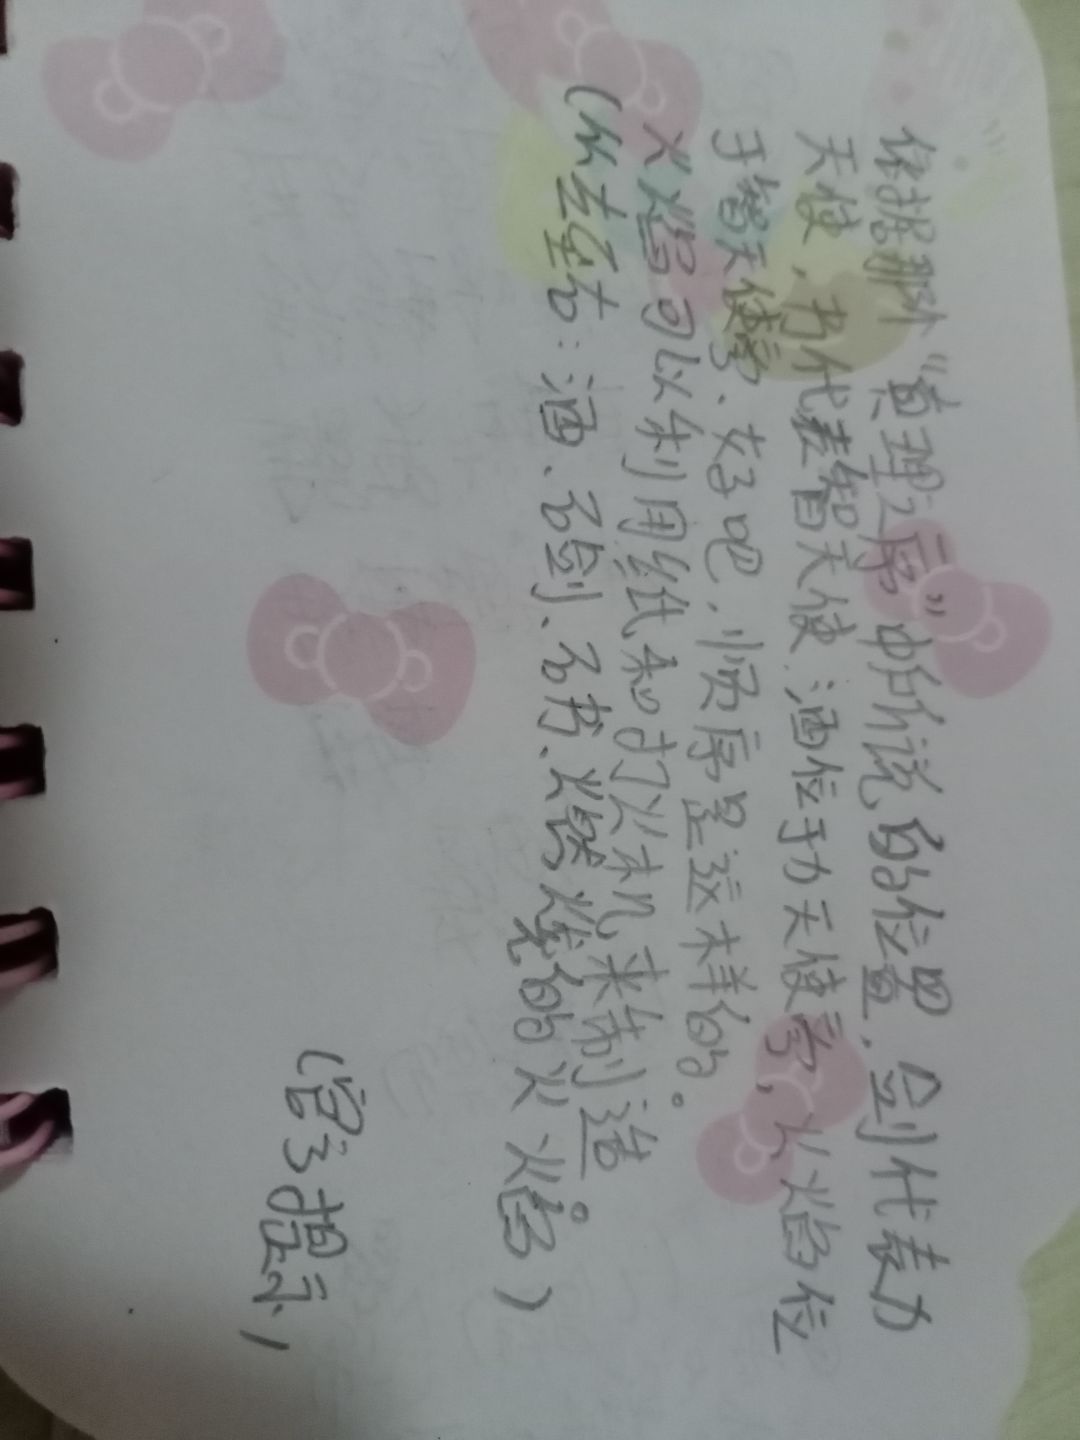 依据那个“真理之序”中所说的位置，剑代表力
天使，书代表智天使，酒位于力天使旁，火焰位
于智天使旁、好吧，顺序是这样的。
火焰可以利用纸和打火机来制造。
（从左至右：酒、石剑、石书、燃烧的火焰）
（官方提示）